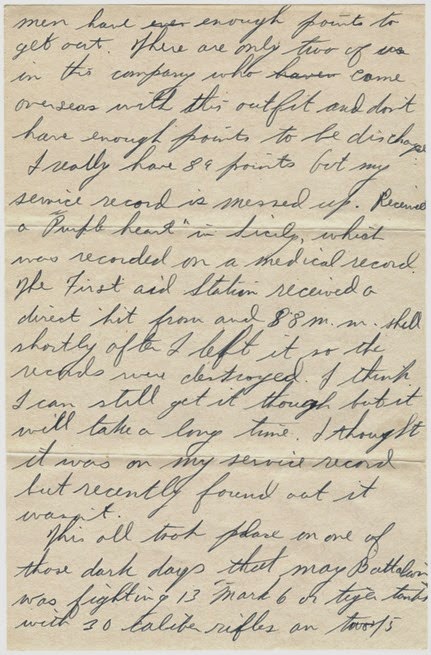 men have ever enough points to
get out. There are only two of us
in this company who haven came
overseas with this outfit and don't
have enough points to be discharge
I really have 89 points but my
service record is messed up. Received
a "Purple heart" in Sicily, which
was recorded on a medical record.
The First aid Station received a
direct hit from and 88 m.m. shell
shortly after I left it so the
records were destroyed. I think
I can still get it though but it
will take a long time. I thought
it was on my service record
but recently found out it
wasn't.
This all took place on one of
those dark days that may Battalion
was fighting 13 Mark 6 or tiger tanks
with 30 caliber rifles an two 75